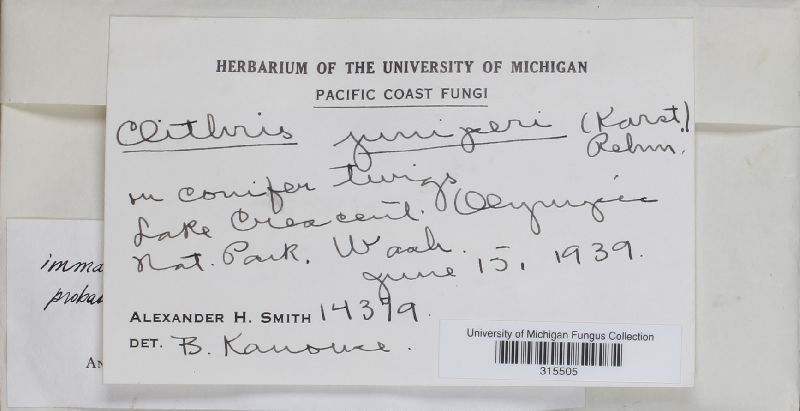 HERBARIUM OF THE UNIVERSITY OF MICHIGAN
PACIFIC COAST FUNGI
Clithris juniperi (Karst.) Rehm.
on conifer twigs
Lake Crescent. Olympic
Nat. Park, Wash.
June 15, 1939.
ALEXANDER H. SMITH 14379.
DET. B. Kanouse.
University of Michigan Fungus Collection
315505
imma
proba
AN